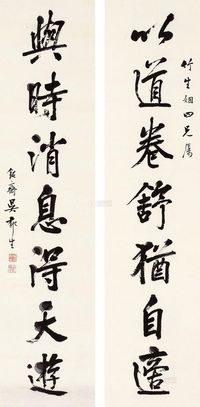 竹生姻四兄属
以道卷舒猶自適
與時消息得天遊
吴郁生